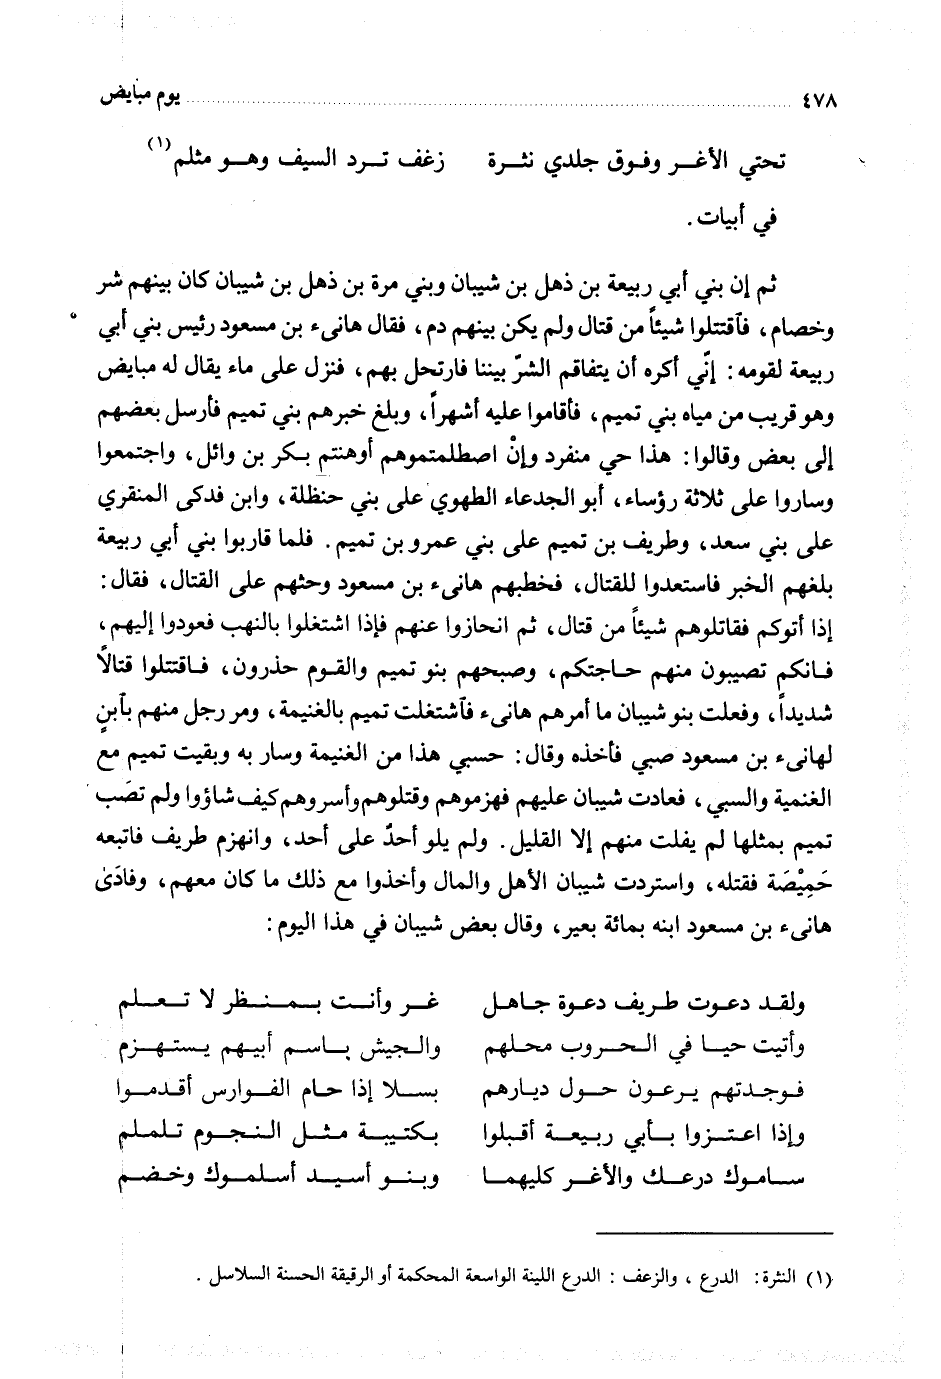 ٤٧٨ ........................................ يوم مبايض
تحتي الأغر وفوق جلدي نثرة زغف ترد السيف وهو مثلم(١)
في أبيات.
ثم إن بني أبي ربيعة بن ذهل بن شيبان وبني مرة بن ذهل بن شيبان كان بينهم شر
وخصام، فآقتتلوا شيئاً من قتال ولم يكن بينهم دم، فقال هانىء بن مسعود رئيس بني أبي
ربيعة لقومه: إنّي أكره أن يتفاقم الشرّ بيننا فارتحل بهم، فنزل على ماء يقال له مبايض
وهو قريب من مياه بني تميم، فأقاموا عليه أشهراً، وبلغ خبرهم بني تميم فأرسل بعضهم
إلى بعض وقالوا: هذا حي منفرد وإنْ اصطلمتموهم أوهنتم بكر بن وائل، واجتمعوا
وساروا على ثلاثة رؤساء، أبو الجدعاء الطهوي على بني حنظلة، وابن فدكى المنقري
على بني سعد، وطريف بن تميم على بني عمرو بن تميم. فلما قاربوا بني أبي ربيعة
بلغهم الخبر فاستعدوا للقتال، فخطبهم هانىء بن مسعود وحثهم على القتال، فقال:
إذا أتوكم فقاتلوهم شيئاً من قتال، ثم انحازوا عنهم فإذا اشتغلوا بالنهب فعودوا إليهم،
فانكم تصيبون منهم حاجتكم، وصبحهم بنو تميم والقوم حذرون، فاقتتلوا قتالاً
شديداً، وفعلت بنو شيبان ما أمرهم هانىء فآشتغلت تميم بالغنيمة، ومر رجل منهم بآبنٍ
لهانىء بن مسعود صبي فأخذه وقال: حسبي هذا من الغنيمة وسار به وبقيت تميم مع
الغنمية والسبي، فعادت شيبان عليهم فهزموهم وقتلوهم وأسروهم كيف شاؤوا ولم تصَب
تميم بمثلها لم يفلت منهم إلا القليل. ولم يلو أحدٌ على أحد، وانهزم طريف فاتبعه
حَمِيْصَة فقتله، واستردت شيبان الأهل والمال وأخذوا مع ذلك ما كان معهم، وفادَىٰ
هانىء بن مسعود ابنه بمائة بعير، وقال بعض شيبان في هذا اليوم:
ولقد دعوت طريف دعوة جاهل غر وأنت بمنظر لا تعلم
وأتيت حيا في الحروب محلهم والجيش باسم أبيهم يستهزم
فوجدتهم يرعون حول ديارهم بسلا إذا حام الفوارس أقدموا
وإذا اعتزوا بأبي ربيعة أقبلوا بكتيبة مثل النجوم تلملم
ساموك درعك والأغر كليهما وبنو أسيد أسلموك وخضم
(١) النثرة: الدرع، والزعف: الدرع اللينة الواسعة المحكمة أو الرقيقة الحسنة السلاسل.